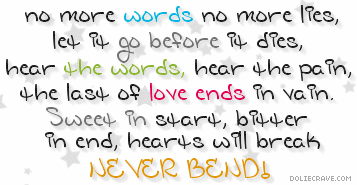 no more words no more lies,
let it go before it dies,
hear the words, hear the pain,
the last of love ends in vain.
Sweet in start, bitter
in end, hearts will break
NEVER BEND!
DOLIECRAVE.COM